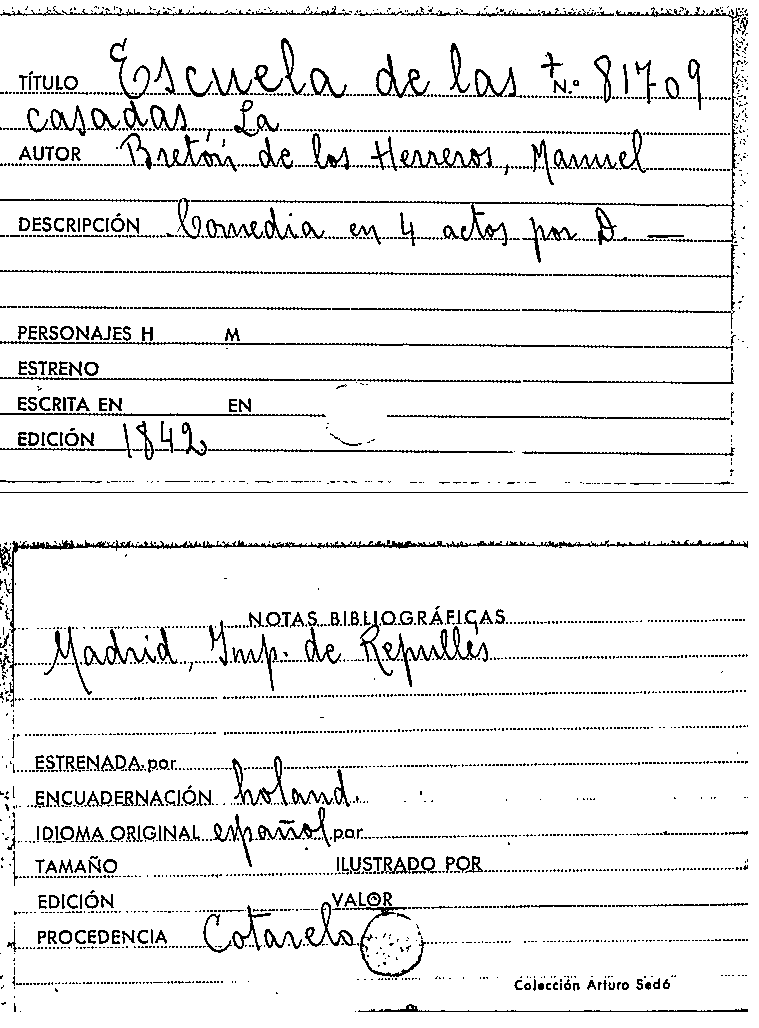 TÍTULO Escuela de las + N.º 81709
casadas, La
AUTOR Bretón de los Herreros, Manuel
DESCRIPCIÓN Comedia en 4 actos por D. —
PERSONAJES H M
ESTRENO
ESCRITA EN EN
EDICIÓN 1842
NOTAS BIBLIOGRÁFICAS
Madrid, Imp. de Repullés
ESTRENADA por
ENCUADERNACIÓN holand.
IDIOMA ORIGINAL español por
TAMAÑO ILUSTRADO POR
EDICIÓN VALOR
PROCEDENCIA Cotarelo
Colección Arturo Sedó